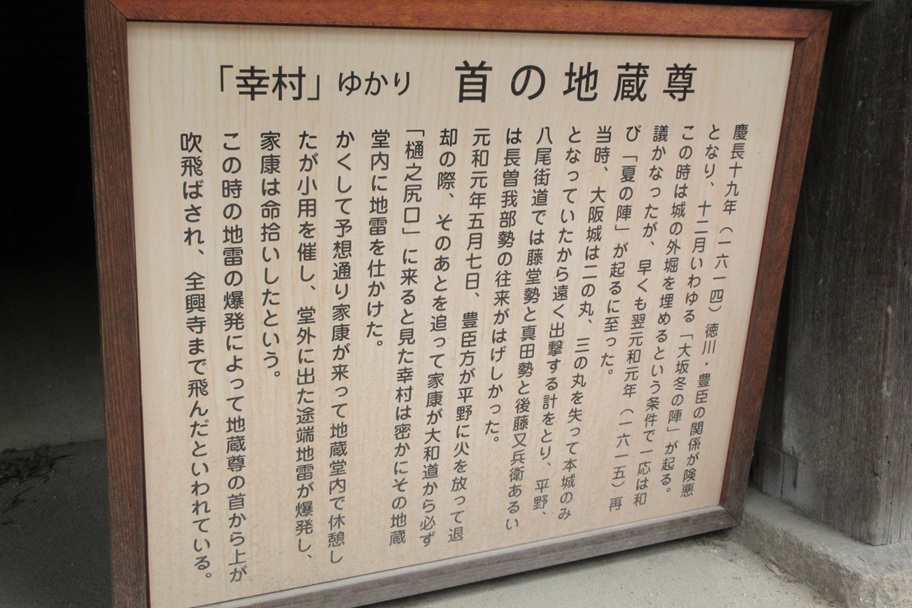 「幸村」ゆかり　首の地蔵尊
慶長十九年（一六一四）徳川・豊臣の関係が険悪
となり、十二月いわゆる「大坂冬の陣」が起る。
この時は城の外堀を埋めるという条件で一応は和
議かなったが、早くも翌元和元年（一六一五）再
び「夏の陣」が起るに至った。
当時、大阪城は二の丸、三の丸を失って本城のみ
となっていたから遠く出撃する計をとり、平野、
八尾街道では藤堂勢と真田勢と後藤又兵衛あるい
は長曽我部勢の往来がはげしかった。
元和元年五月七日、豊臣方が平野に火を放って退
却の際、そのあとを追って家康が大和道から必ず
「樋之尻口」に来ると見た幸村は密かにその地蔵
堂内に地雷を仕かけた。
かくして予想通り家康が来って地蔵堂内で休憩し
たが小用を催し、堂外に出た途端地雷が爆発し、
家康は命拾いしたという。
この時の地雷の爆発によって地蔵尊の首から上が
吹飛ばされ、全興寺まで飛んだといわれている。